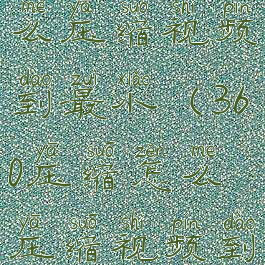 me yā suō shì pín
么压缩视频
dào zuì xiǎo
到最小（36
yā suō zěn me
0压缩怎么
yā suō shì pín dào
压缩视频到